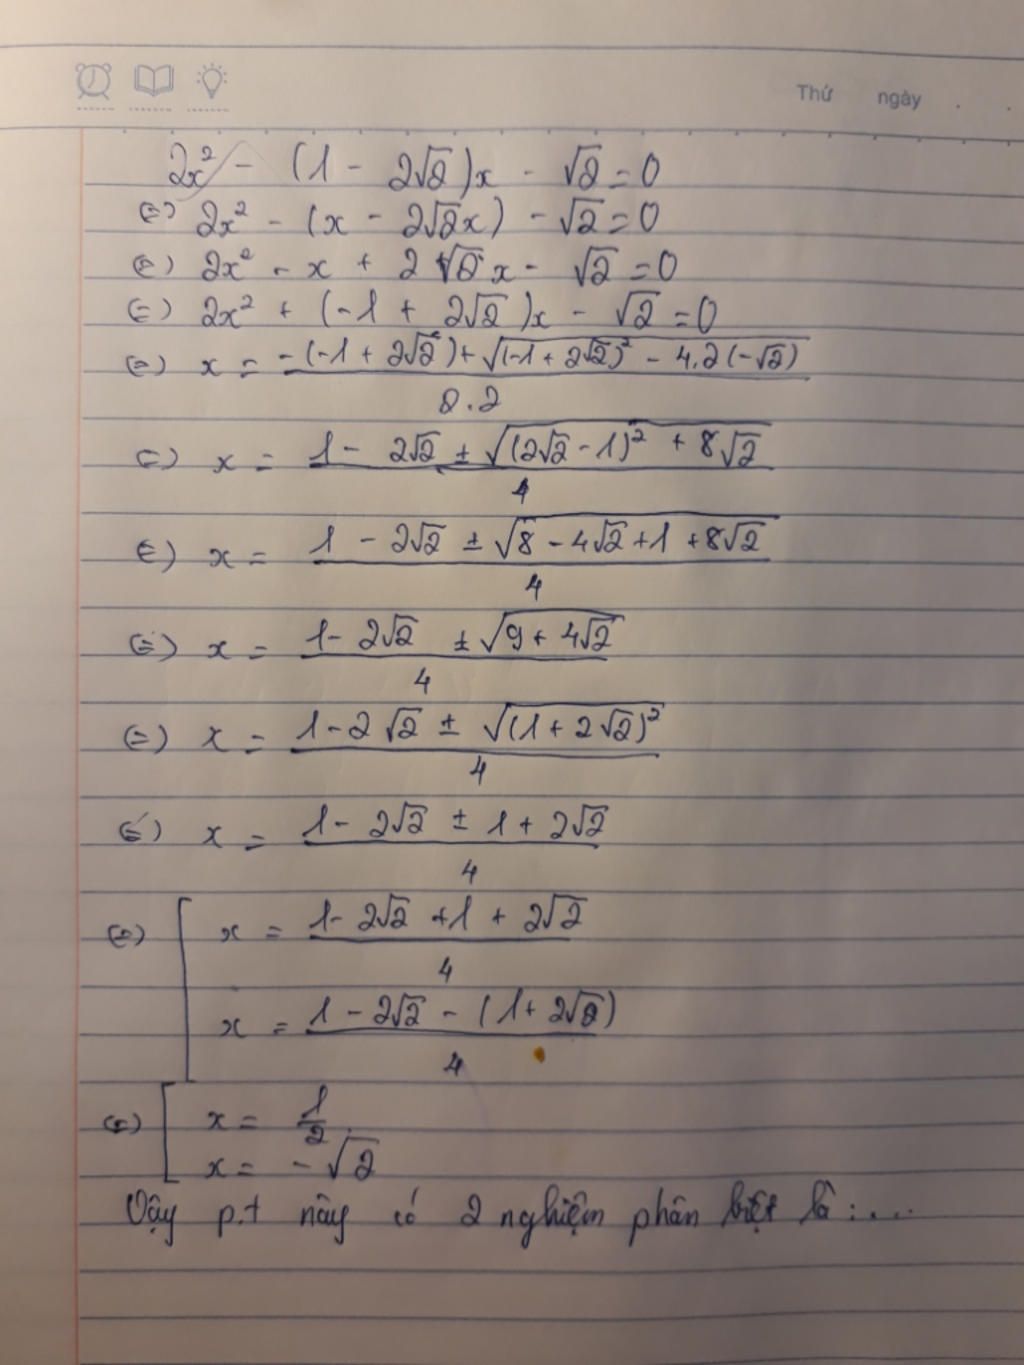 Thứ ngày
2x² - (1 - 2√2)x - √2 = 0
(=) 2x² - (x - 2√2x) - √2 = 0
(=) 2x² - x + 2√2x - √2 = 0
(=) 2x² + (-1 + 2√2)x - √2 = 0
(=) x = (-(-1 + 2√2) + √((-1 + 2√2)² - 4.2(-√2))) / 2.2
(=) x = (1 - 2√2 ± √((2√2 - 1)² + 8√2)) / 4
(=) x = (1 - 2√2 ± √(8 - 4√2 + 1 + 8√2)) / 4
(=) x = (1 - 2√2 ± √(9 + 4√2)) / 4
(=) x = (1 - 2√2 ± √((1 + 2√2)²)) / 4
(=) x = (1 - 2√2 ± 1 + 2√2) / 4
(=) [ x = (1 - 2√2 + 1 + 2√2) / 4
x = (1 - 2√2 - (1 + 2√2)) / 4
(=) [ x = 1/2
x = -√2
Vậy p.t này có 2 nghiệm phân biệt là : ...